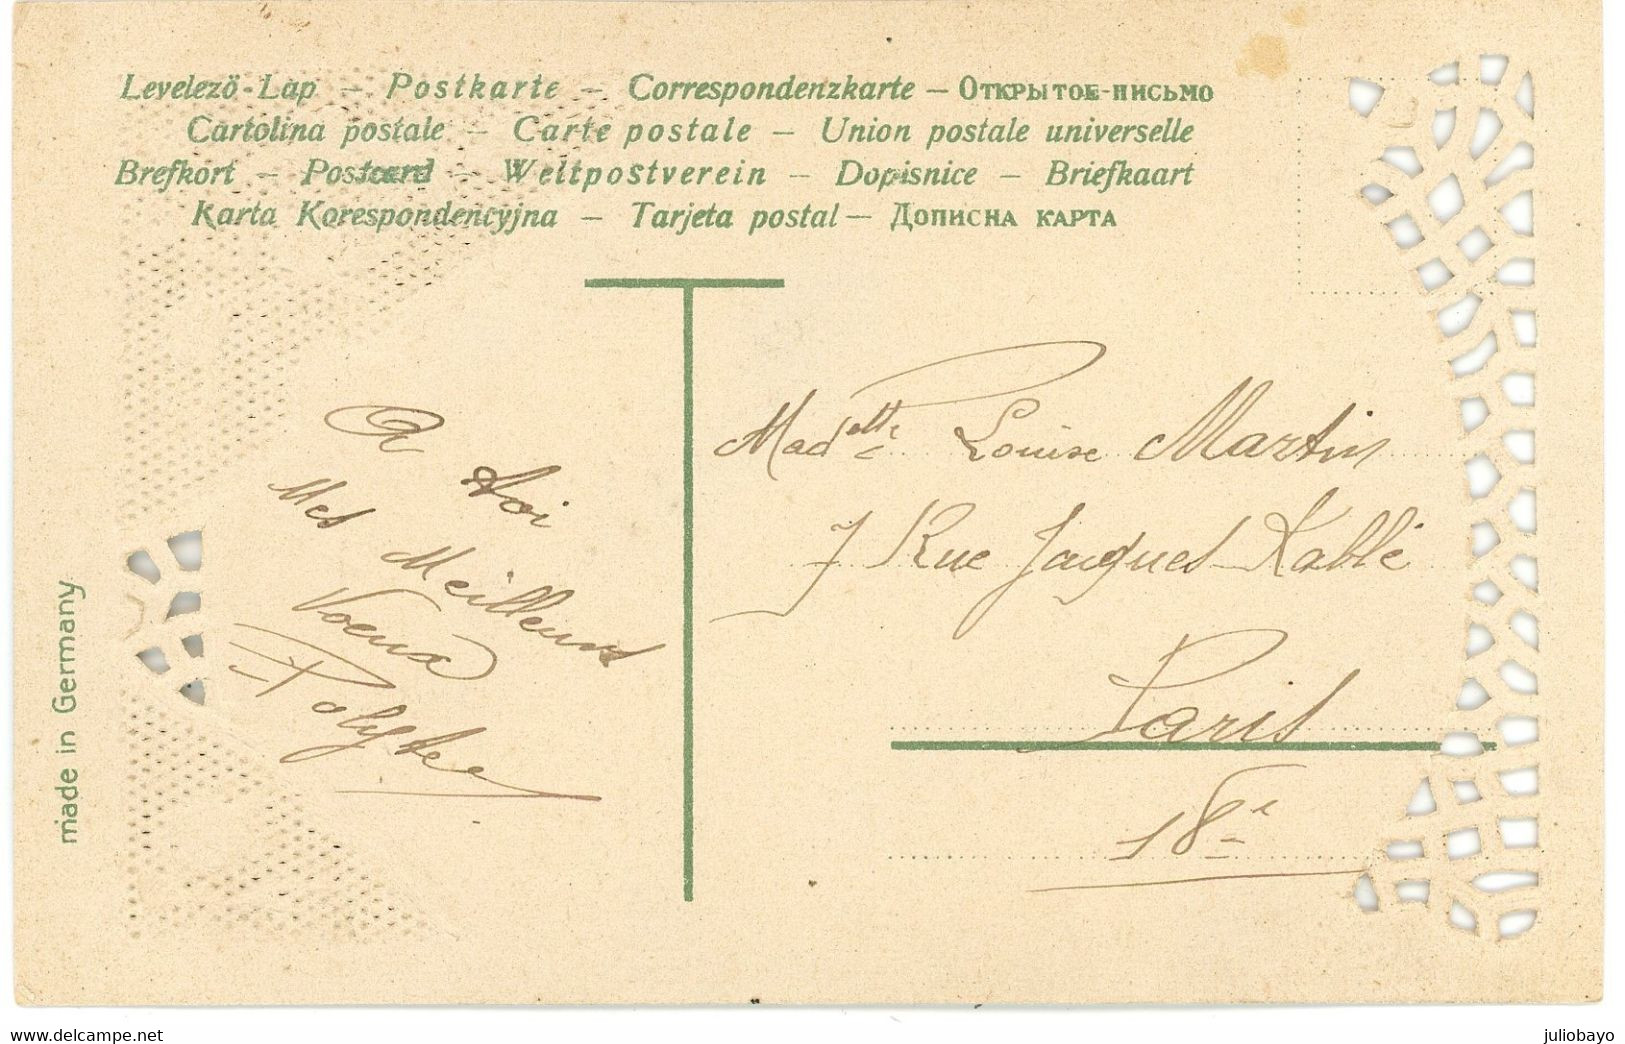 Levelező-Lap – Postkarte – Correspondenzkarte – Открытое-письмо
Cartolina postale – Carte postale – Union postale universelle
Brefkort – Postcard – Weltpostverein – Dopisnice – Briefkaart
Karta Korespondencyjna – Tarjeta postal – Дописна карта
A toi
Mes Meilleurs
Voeux
made in Germany
Madelle Louise Martin
7 Rue Jacques Kablé
Paris
18e
delcampe.net
juliobayo